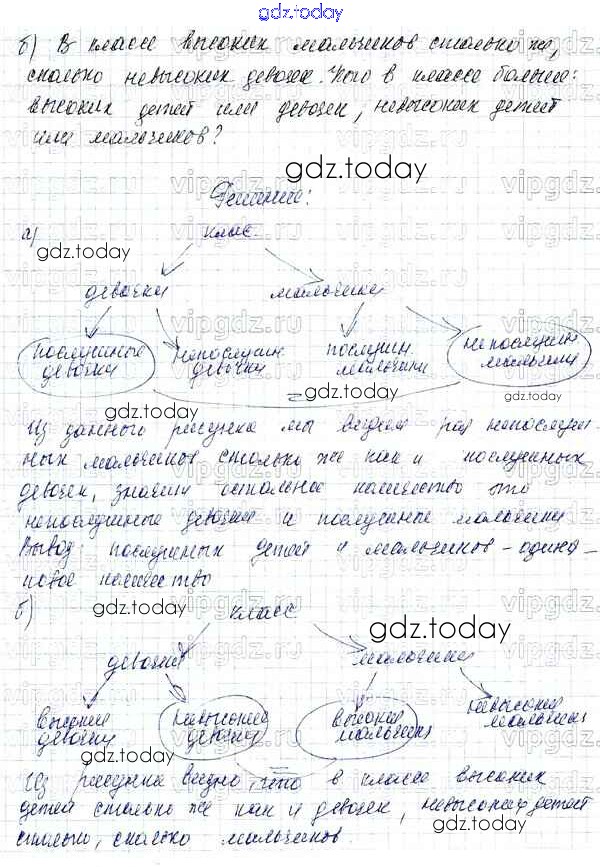 gdz.today
б) В классе высоких мальчиков столько же,
сколько невысоких девочек. Кого в классе больше:
высоких детей или девочек, невысоких детей
или мальчиков?
gdz.today
Решение:
а) класс
gdz.today
девочки мальчики
послушные девочки непослушн. девочки послушн. мальчики непослушн мальчики
=
gdz.today gdz.today
Из данного рисунка мы видим раз непослуш-
ных мальчиков столько же как и послушных
девочек, значит остальное количество это
непослушные девочки и послушные мальчики
Вывод: послушных детей и мальчиков - одина-
ковое количество
б) gdz.today класс
gdz.today
девочки мальчики
высокие девочки невысокие девочки высокие мальчики невысокие мальчики
gdz.today gdz.today
=
Из рисунка видно, что в классе высоких
детей столько же как и девочек, невысоких детей
столько, сколько мальчиков.